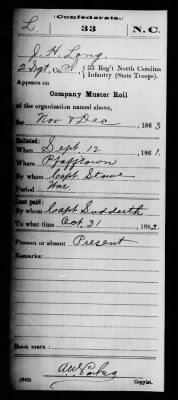 (Confederate.)
L. 33 N.C.
J. H. Long
2 Sgt, Co. H, 33 Reg't North Carolina
Infantry (State Troops).
Appears on
Company Muster Roll
of the organization named above,
for Nov & Dec, 1863
Enlisted:
When Sept. 12, 1861.
Where Pfafftown
By whom Capt Stowe
Period War
Last paid:
By whom Capt Sudderth
To what time Oct. 31, 1863.
Present or absent Present
Remarks:
Book mark:
(642) Copyist.